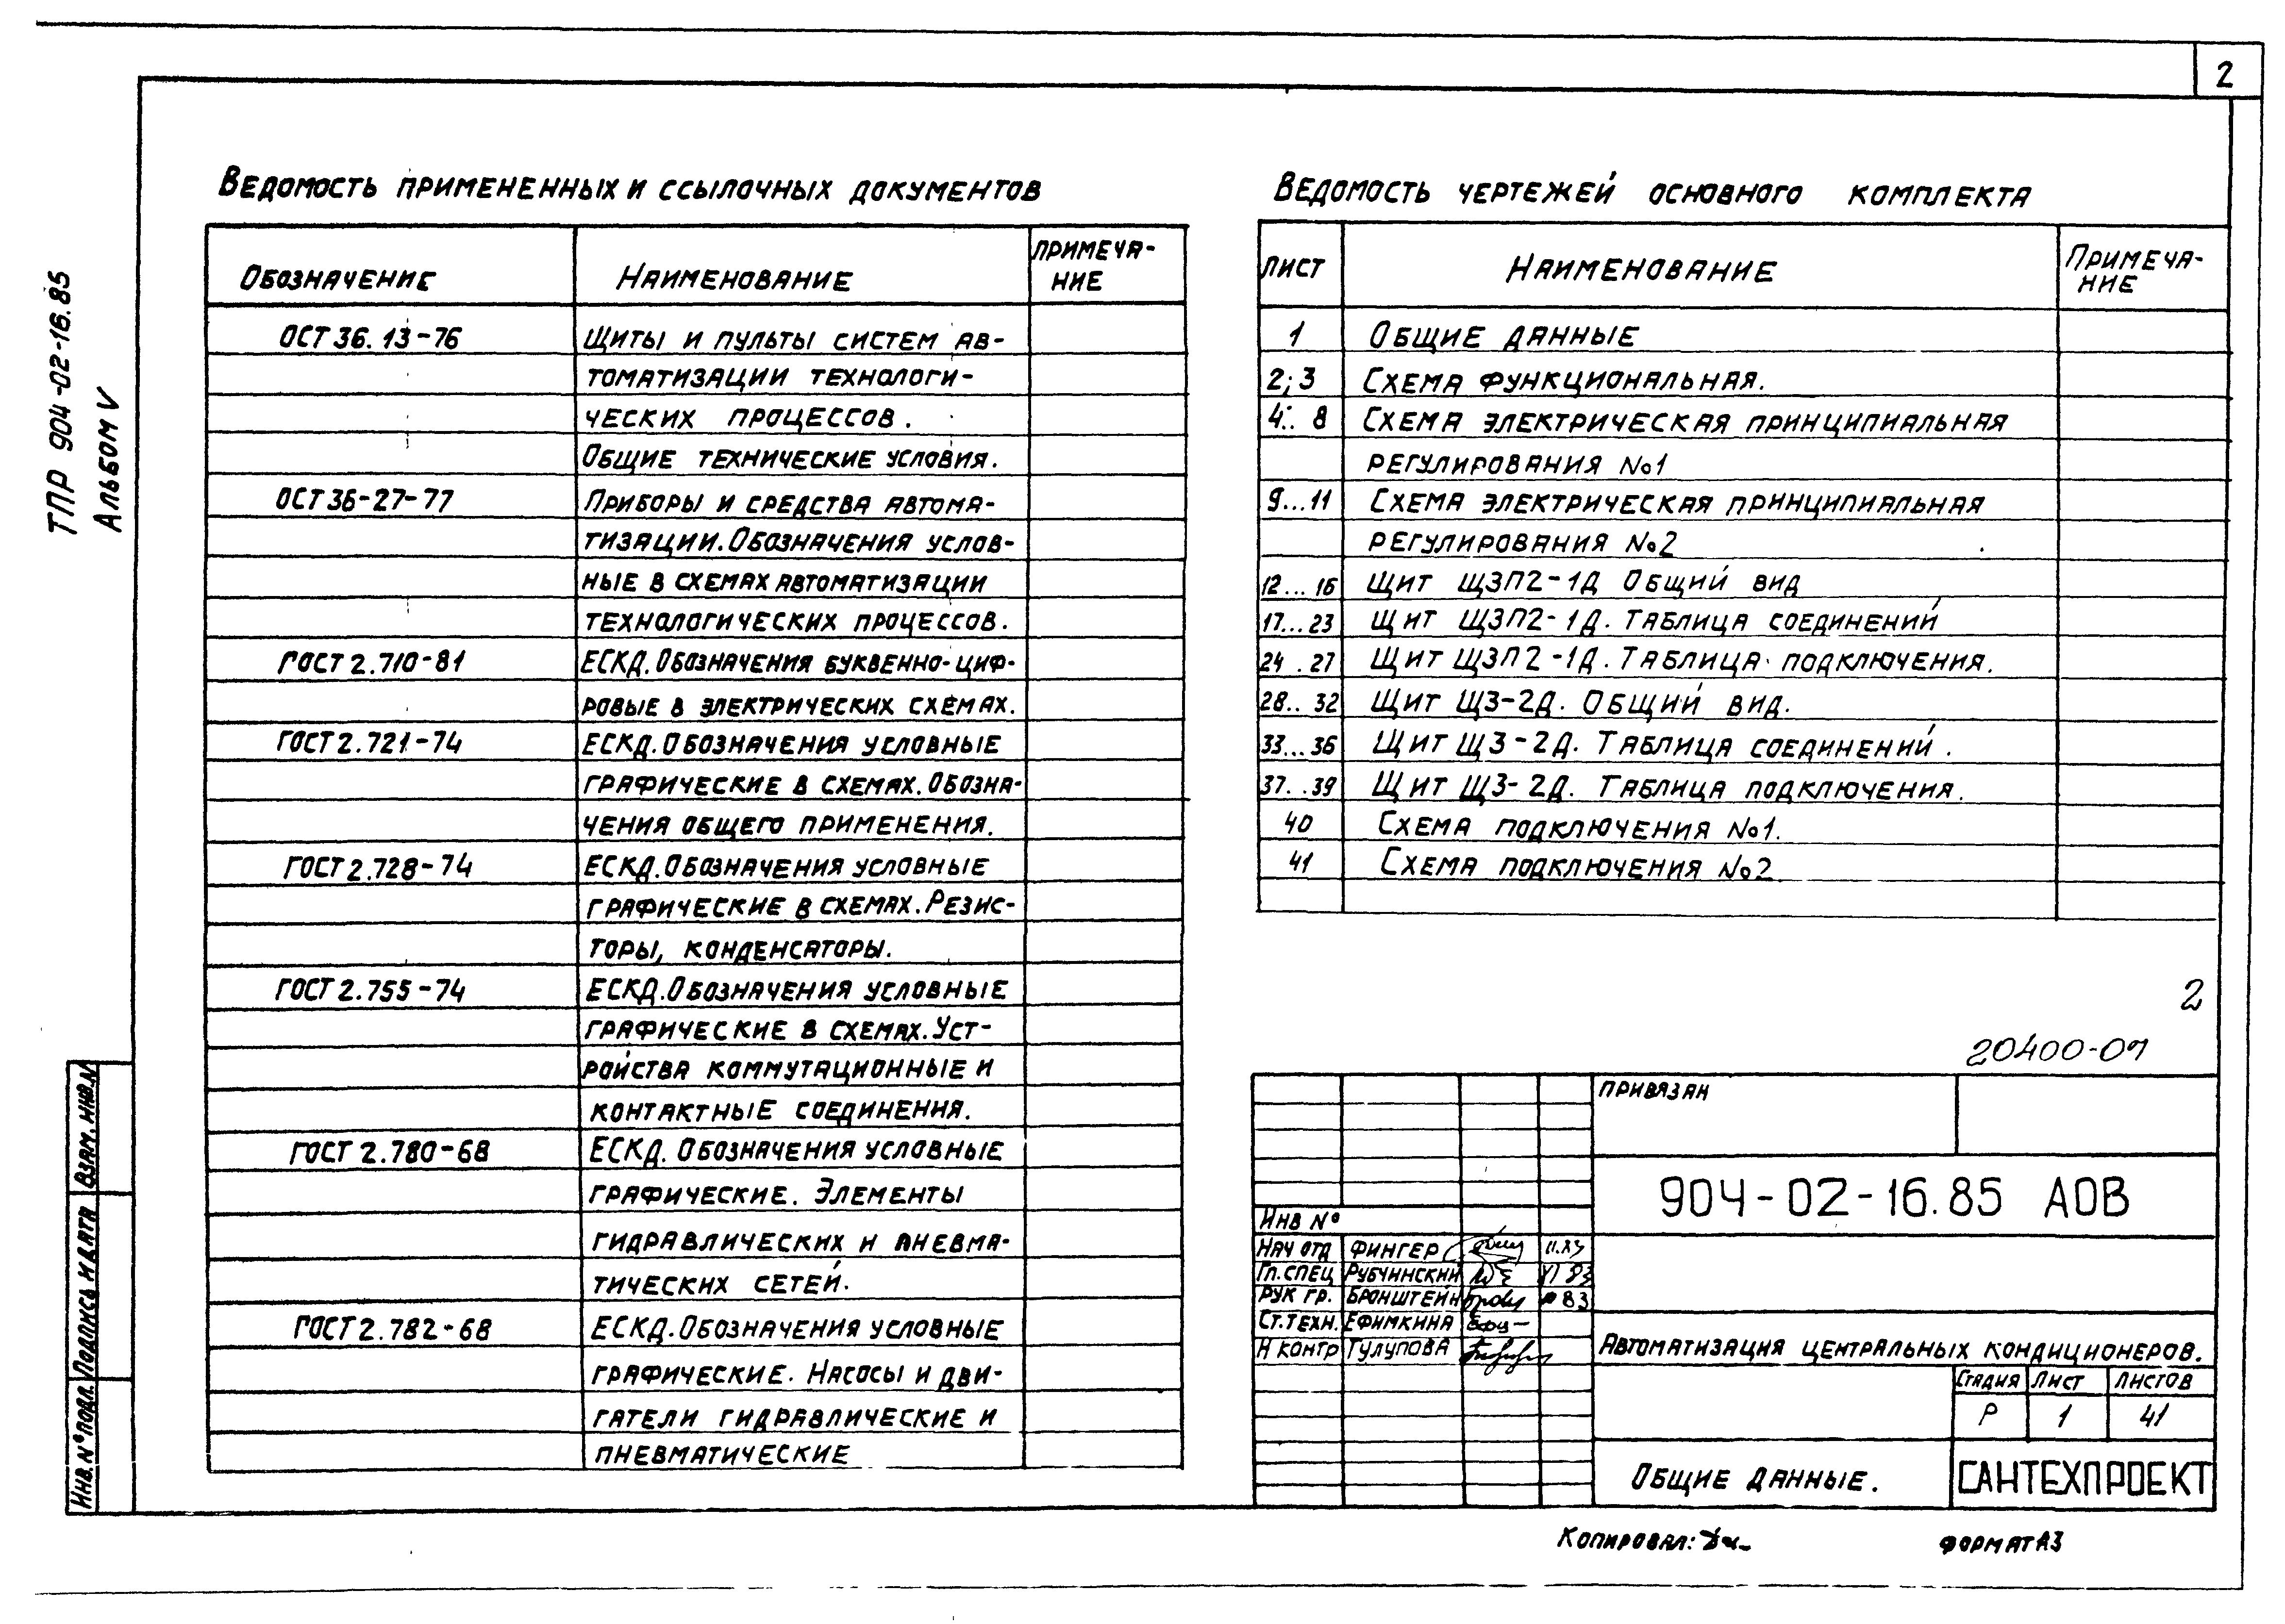 2
ТПР 904-02-16.85
Альбом V
Ведомость примененных и ссылочных документов
Обозначение Наименование Примеча-
ние
ОСТ 36.13-76 Щиты и пульты систем ав-
томатизации технологи-
ческих процессов.
Общие технические условия.
ОСТ 36-27-77 Приборы и средства автома-
тизации. Обозначения услов-
ные в схемах автоматизации
технологических процессов.
ГОСТ 2.710-81 ЕСКД. Обозначения буквенно-циф-
ровые в электрических схемах.
ГОСТ 2.721-74 ЕСКД. Обозначения условные
графические в схемах. Обозна-
чения общего применения.
ГОСТ 2.728-74 ЕСКД. Обозначения условные
графические в схемах. Резис-
торы, конденсаторы.
ГОСТ 2.755-74 ЕСКД. Обозначения условные
графические в схемах. Уст-
ройства коммутационные и
контактные соединения.
ГОСТ 2.780-68 ЕСКД. Обозначения условные
графические. Элементы
гидравлических и пневма-
тических сетей.
ГОСТ 2.782-68 ЕСКД. Обозначения условные
графические. Насосы и дви-
гатели гидравлические и
пневматические
Ведомость чертежей основного комплекта
Лист Наименование Примеча-
ние
1 Общие данные
2; 3 Схема функциональная.
4.. 8 Схема электрическая принципиальная
регулирования №1
9...11 Схема электрическая принципиальная
регулирования №2
12...16 Щит ЩЗП2-1Д Общий вид
17...23 Щит ЩЗП2-1Д. Таблица соединений
24 . 27 Щит ЩЗП2-1Д. Таблица подключения.
28.. 32 Щит ЩЗ-2Д. Общий вид.
33...36 Щит ЩЗ-2Д. Таблица соединений.
37. .39 Щит ЩЗ-2Д. Таблица подключения.
40 Схема подключения №1.
41 Схема подключения №2
2
20400-07
Привязан
904-02-16.85 АОВ
Инв №
Нач отд Фингер 11.83
Гл. спец Рубчинский XI 83
Рук гр. Бронштейн 83
Ст. техн. Ефимкина
Н контр Тулупова
Автоматизация центральных кондиционеров.
Стадия Лист Листов
Р 1 41
Общие данные. САНТЕХПРОЕКТ
Копировал: Формат А3
Взам. инв. N
Подпись и дата
Инв. № подл.